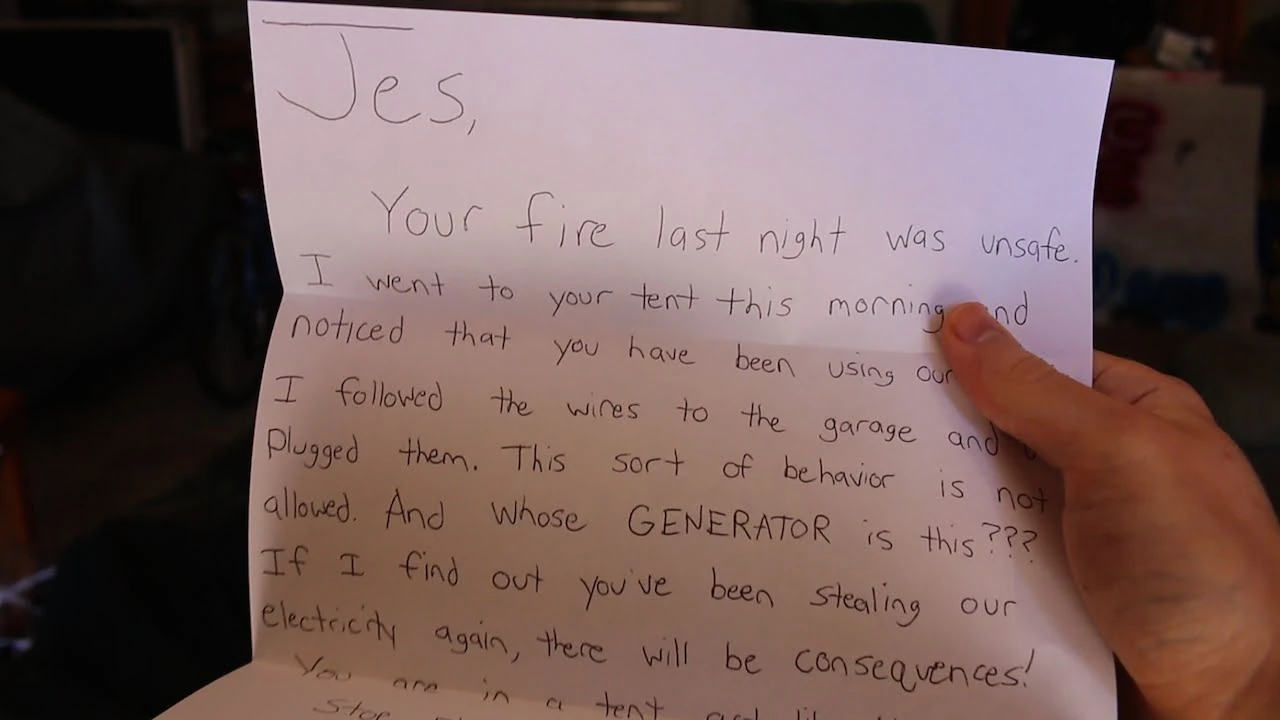 Jes,
Your fire last night was unsafe.
I went to your tent this morning and
noticed that you have been using our
I followed the wires to the garage and
plugged them. This sort of behavior is not
allowed. And whose GENERATOR is this???
If I find out you've been stealing our
electricity again, there will be consequences!
You are in a tent
Stop